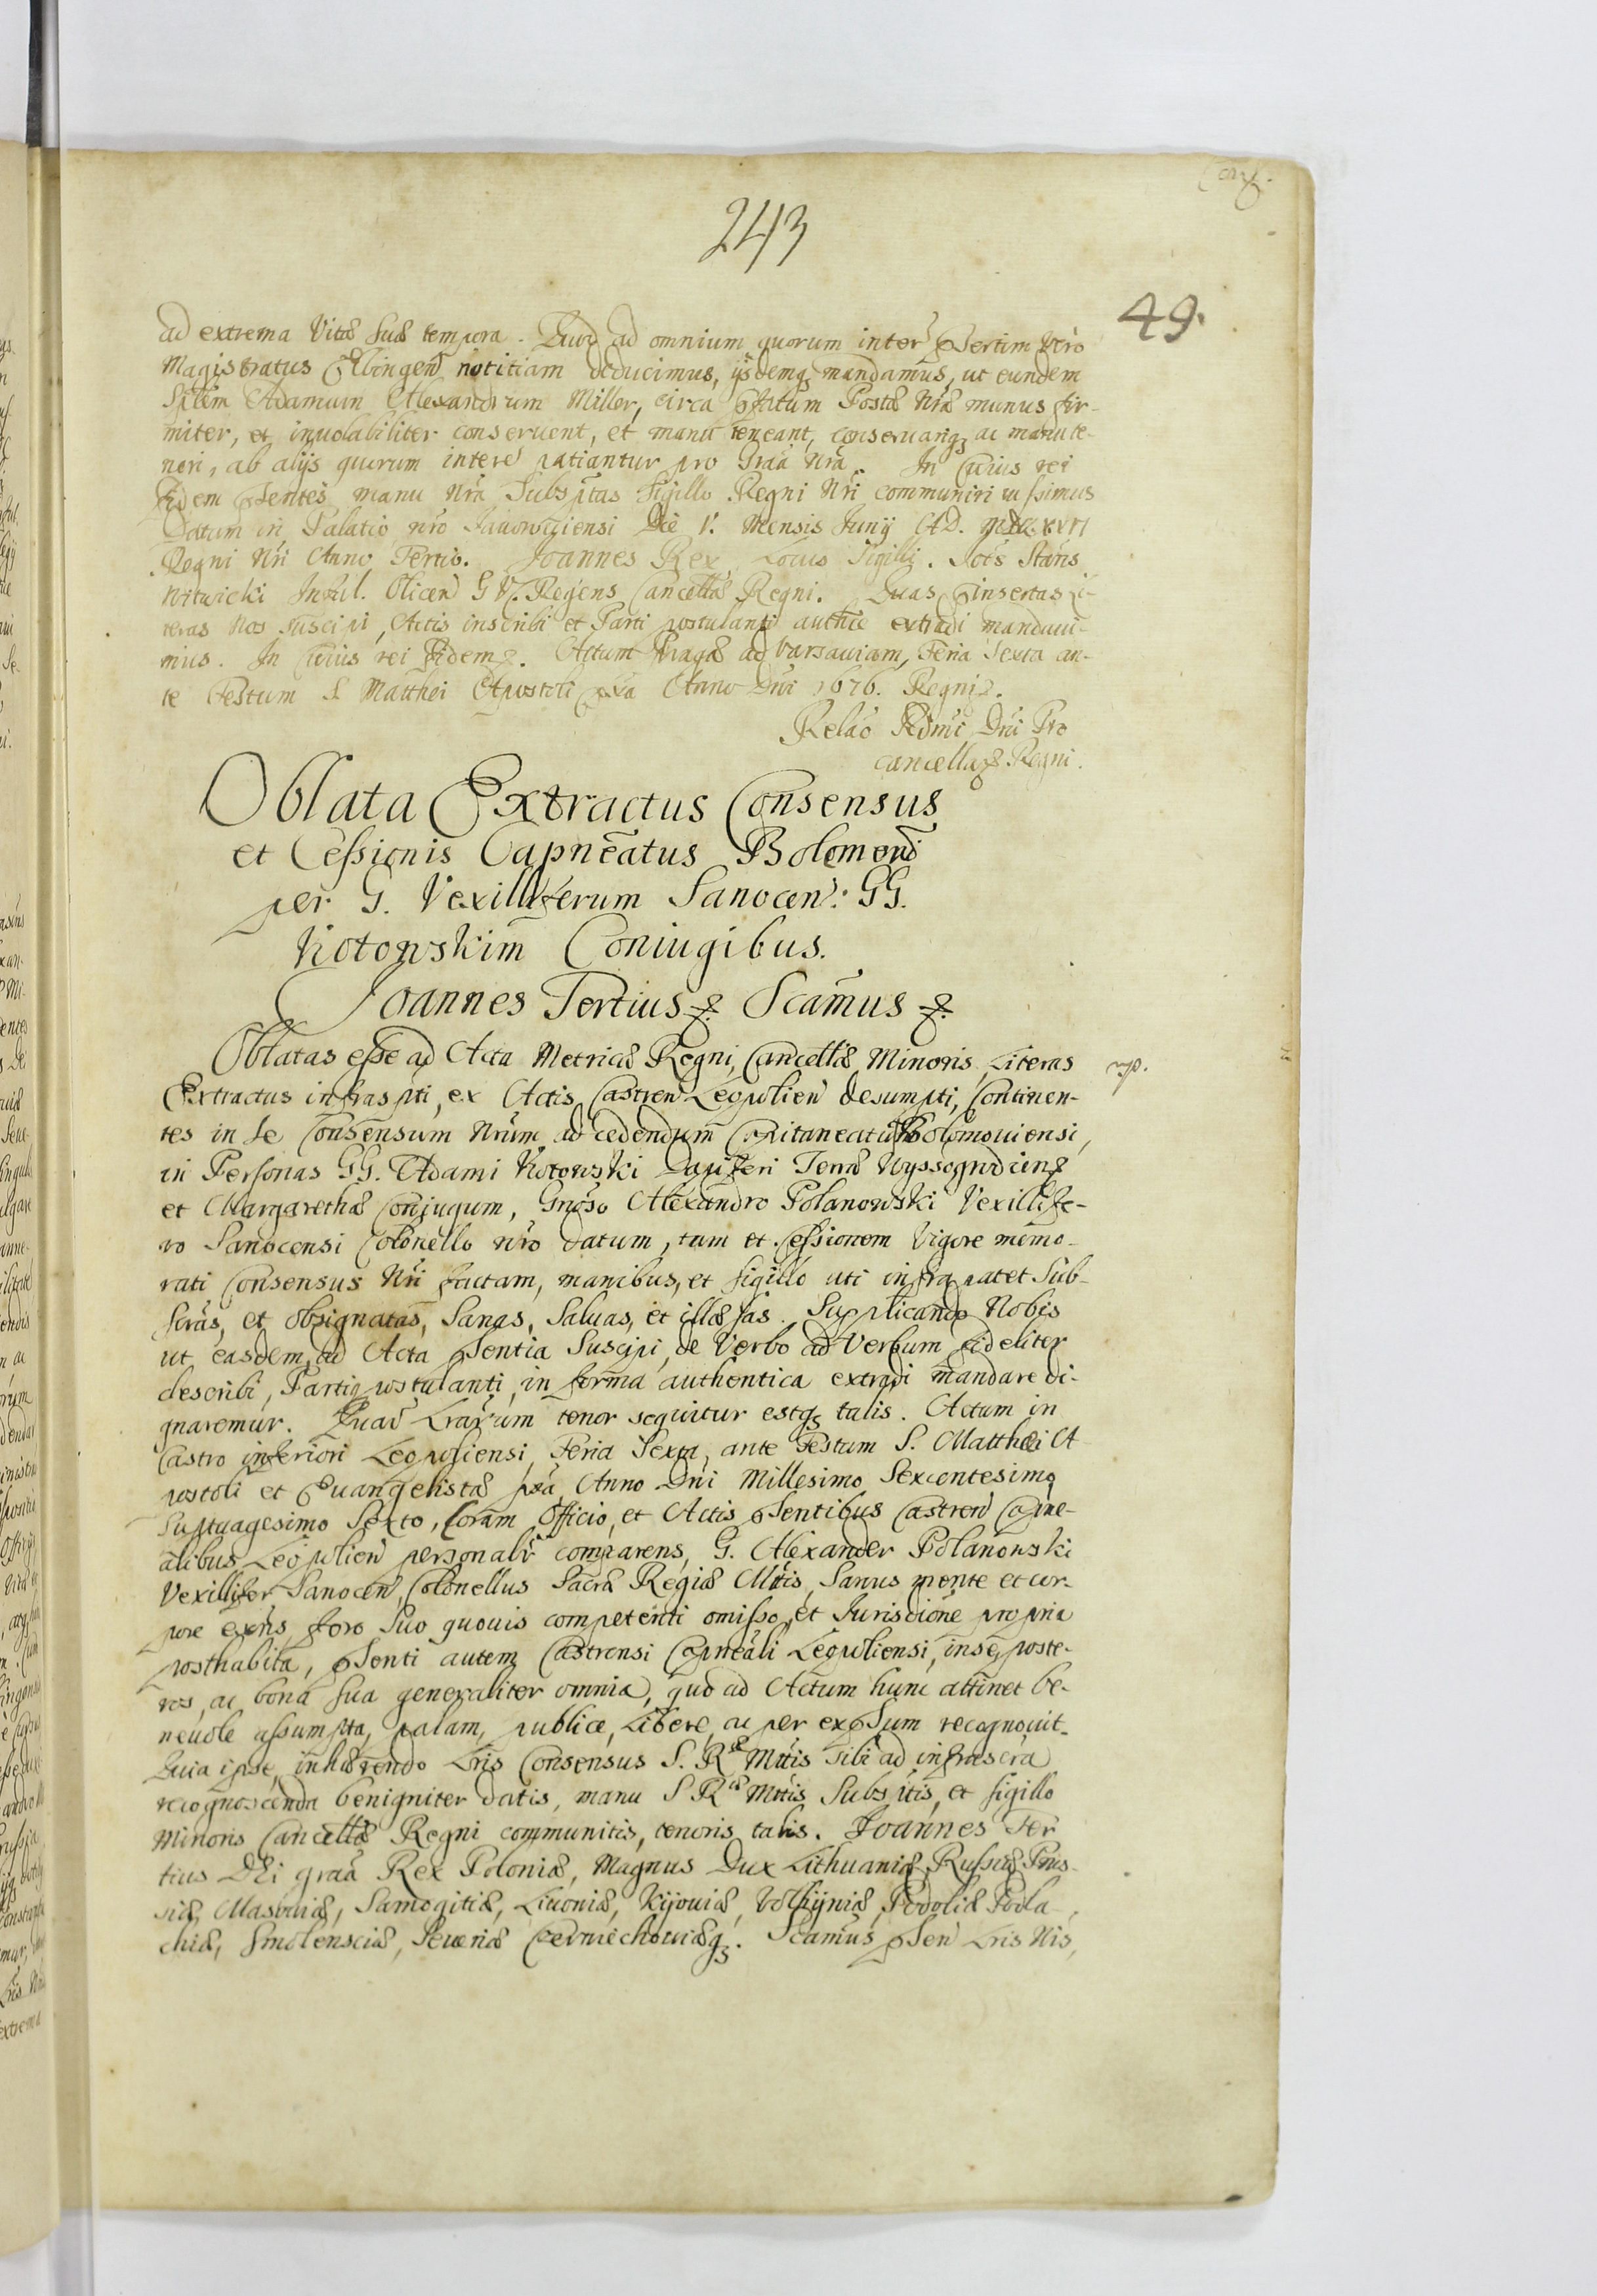 243
49.
ad extrema Vitæ suæ tempora. Quod ad omnium quorum interꝰ pñsertim vero
Magistratus Elbingeñ notitiam deducimus, ijsdemq₃ mandamus, ut eundem
Spltem Adamum Alexandrum Miller, circa pfatum Postæ Nræ munus fir-
miter, et inviolabiliter conservent, et manu teneant, conservariq₃ ac manute-
neri, ab alijs quorum interẽ patiantur pro Graã Nrã. In Cuius rei
Fidem pñsentes manu Nrã Subsptas Sigillo Regni Nri communiri iussimus
Datum in Palatio nro Jaworoviensi Die V. Mensis Junij A.D. MDCLXXVI
Regni Nri Anno Tertio. Joannes Rex Locus Sigilli. Joẽs Stãns
Witwicki Inful. Oliceñ G V. Regens Cancellæ Regni. Quas pinsertas Li-
teras Nos suscipi, Actis inscribi et Parti postulanti authce extradi mandavi-
mus. In Cuius rei Fidem ꝛ. Actum Pragæ ad Varsaviam, Feria Sexta an-
te Festum S Matthei Apostoli pxa Anno Dni 1676. Regni ꝛ.
Relão Rdmi Dni Pro
cancellarij Regni.
Oblata Extractus Consensus
et Cessionis Capneatus Bolemoueñ
per G. Vexilliferum Sanoceñ: GG.
Kotowskim Coniugibus.
Joannes Tertius ꝛ. Scamus ꝛ.
Oblatas esse ad Acta Metricæ Regni, Cancellæ Minoris Literas
Extractus infraspti, ex Actis Castreñ Leopolieñ desumpti, Continen-
tes in se Consensum Nrum ad cedendum Capitaneatu Bolomoviensi,
in Personas GG. Adami Kotowski Dapiferi Terræ Wyssogrodieñ
et Margarethæ Conjugum, Gnoso Alexandro Polanowski Vexillife-
ro Sanocensi Colonello nro datum, tum et Cessionem Vigore memo-
rati Consensus Nri factam, manibus, et sigillo uti infra patet Sub-
scras, et obsignatas, Sanas, Salvas, et illæsas. Supplicando Nobis
ut easdem, ad Acta pñsentia Suscipi, de Verbo ad Verbum fideliter
describi, Partiq₃ postulanti, in forma authentica extradi mandare di-
gnaremur. Quar̃ Lrarum tenor sequitur estq₃ talis. Actum in
Castro inferiori Leopoliensi, Feria Sexta, ante Festum S. Matthæi A-
postoli et Evangelistæ pxa, Anno Dni Millesimo Sexcentesimo
Suptuagesimo Sexto, Coram Officio, et Actis pñsentibus Castreñ Capne-
alibus Leopolieñ personalr̃ comparens, G. Alexander Polanowski
Vexillifer Sanoceñ, Colonellus Sacræ Regiæ Mttis, Sanus mente et cor-
pore exñs, foro suo quovis competenti omisso, et Jurisdictione propria
posthabita, pñsenti autem Castrensi Capneali Leopoliensi, inse, poste-
ros, ac bona sua generaliter omnia, quo ad Actum hunc attinet be-
nevole assumpta, palam, publice, Libere, ac per expsum recognovit
Quia ipse, inhærendo Lris Consensus S. Ræ Mttis Sibi ad infrascra
recognoscenda benigniter datis, manu S Ræ Mttis Subsptis, et sigillo
Minoris Cancellæ Regni communitis, tenoris talis. Joannes Ter
tius DEi graã Rex Poloniæ, Magnus Dux Lithuaniæ, Russiæ Prus-
siæ, Masoviæ, Samogitiæ, Livoniæ, Kijoviæ, Volhyniæ, Podoliæ Podla-
chiæ, Smolensciæ, Severiæ Czernie choviæq₃. Scamus pñseñ Lris Nis,